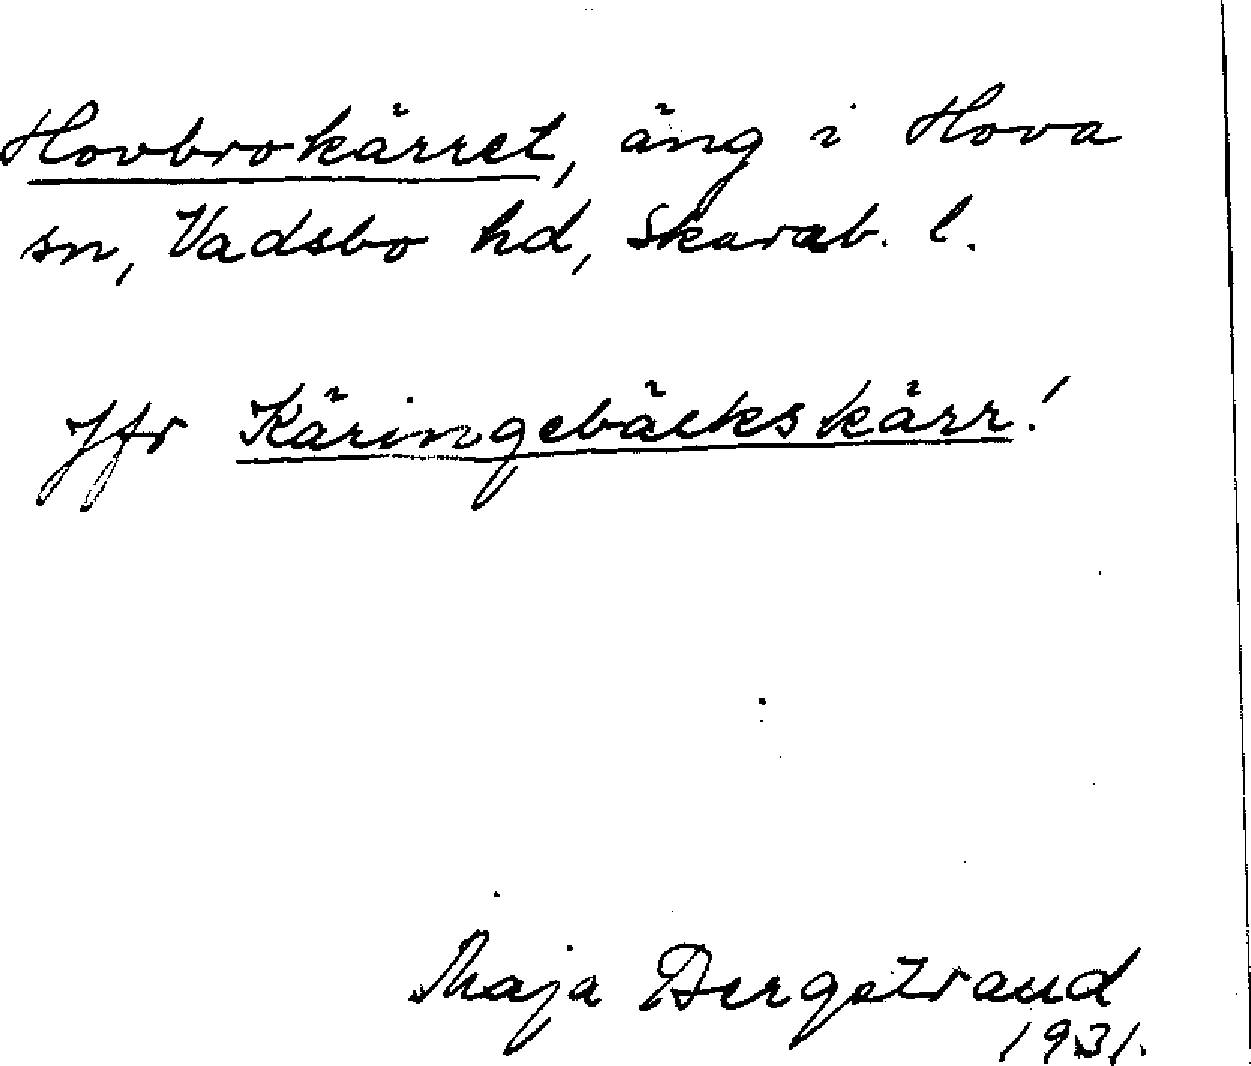 Hovbrokärret, äng i Hova
sn, Vadsbo hd, Skarab. l.
Jfr Käringebäckskärr!
Maja Bergstrand
1931.